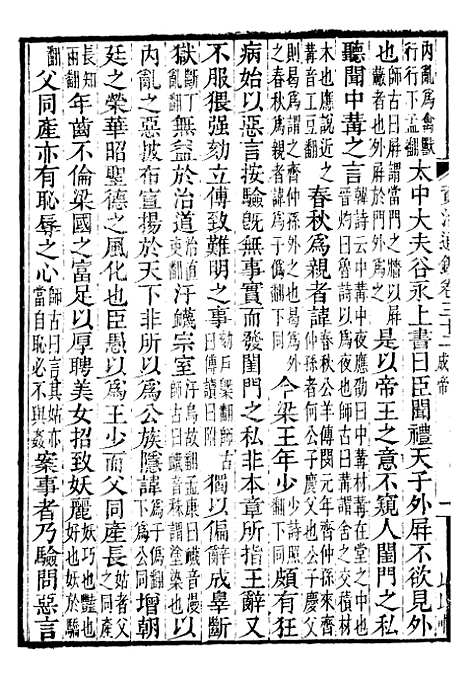 内亂爲禽獸行行下孟翻太中大夫谷永上書曰臣聞禮天子外屏不欲見外
也師古曰屏謂當門之牆以屏蔽者也是以帝王之意不窺人閨門之私
聽聞中冓之言晉灼曰魯詩以爲夜也韓詩云中冓中夜應劭曰中冓材冓在堂之中也師古曰冓謂舍之交積材
木也應說近之冓音工豆翻春秋爲親者諱春秋公羊傳閔元年齊仲孫來齊仲孫者何公子慶父也公子慶父則曷爲謂之齊仲孫外之也曷爲外之春秋爲尊者諱爲親者諱爲于僞翻今梁王年少少詩照翻頗有狂
病始以惡言按驗旣無事實而發閨門之私非本章所指王辭又
不服猥强劾立傅致難明之事劾戶槩翻師古曰傅讀曰附獨以偏辭成辠斷
獄斷丁亂翻無益於治道治直吏翻汙衊宗室汙烏故翻孟康曰衊音漫師古曰衊音秣謂塗染也以
内亂之惡披布宣揚於天下非所以爲公族隱諱爲于僞翻下爲公同增朝
廷之榮華昭聖德之風化也臣愚以爲王少而父同產長姑者父之同產
長知兩翻年齒不倫梁國之富足以厚聘美女招致妖麗妖巧也豔也好也妖於驕
翻父同產亦有恥辱之心師古曰言其姑亦當自恥必不與姦案事者乃驗問惡言
資治通鑑卷三十二 成帝